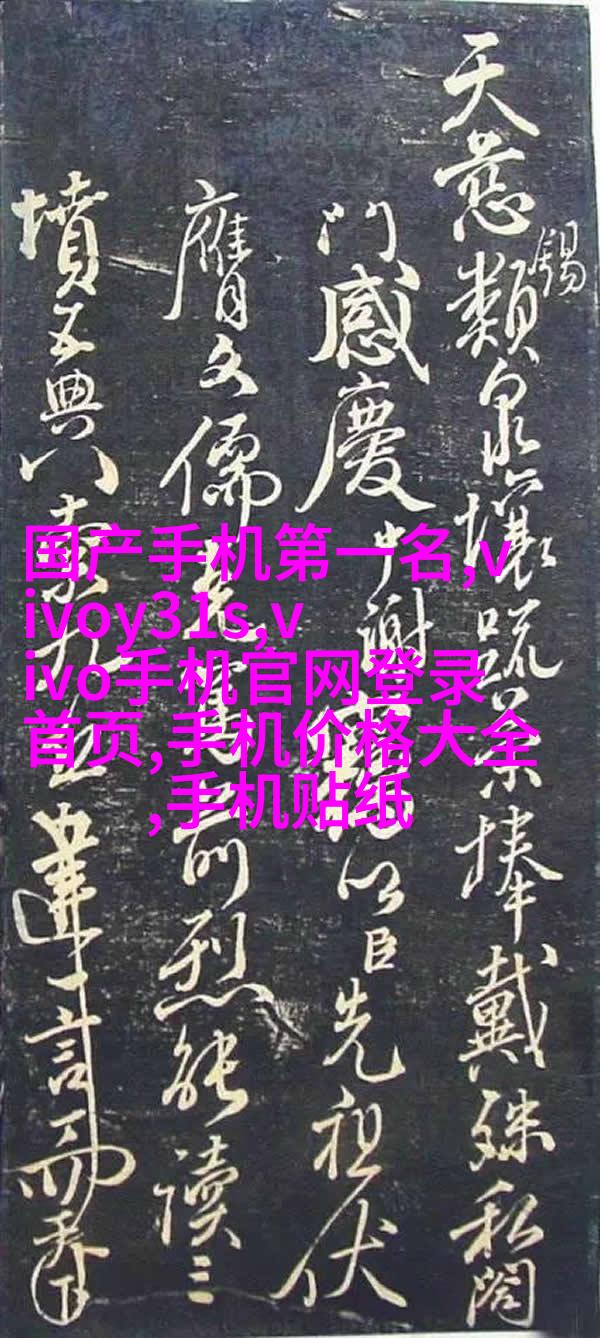 天慈錫類泉壤疏榮捧戴殊私闔
門感慶中謝以臣先祖伏
膺文儒克篤前烈能讀三
墳五典八索九丘言
国产手机第一名,v
ivoy31s,v
ivo手机官网登录
首页,手机价格大全
,手机贴纸